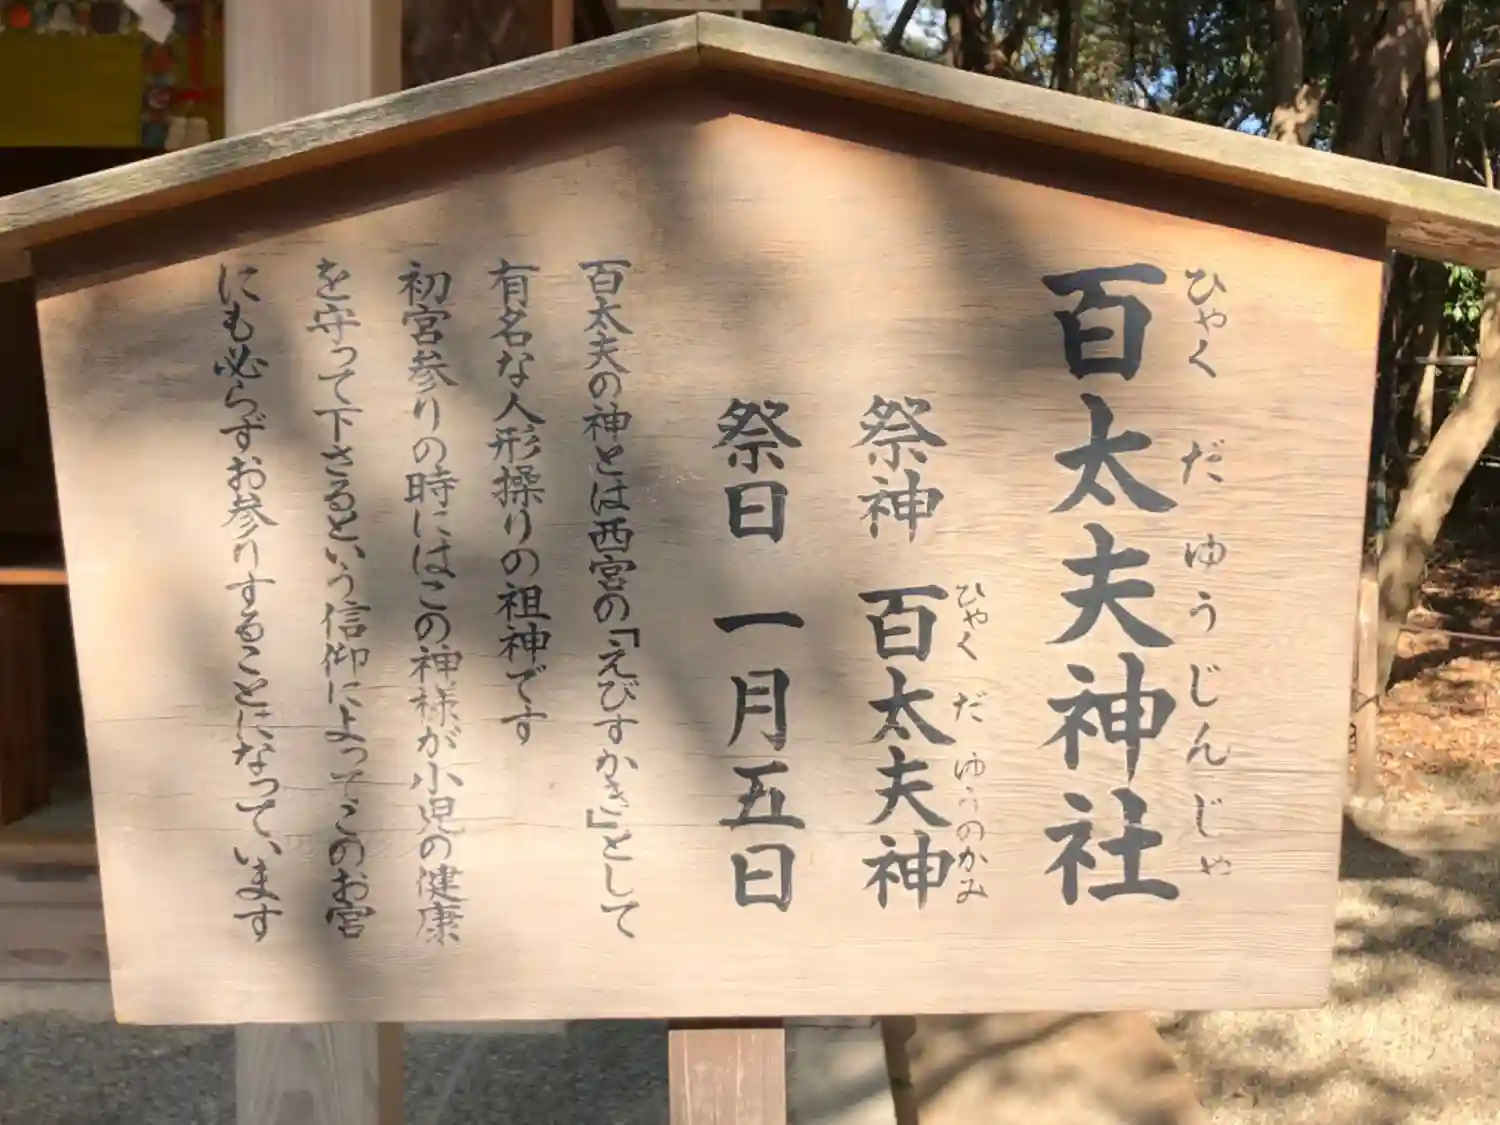 百太夫神社
ひゃくだゆうじんじゃ
祭神 百太夫神
ひゃくだゆうのかみ
祭日 一月五日
百太夫の神とは西宮の『えびすかき』として
有名な人形操りの祖神です
初宮参りの時にはこの神様が小児の健康
を守って下さるという信仰によってこのお宮
にも必らずお参りすることになっています